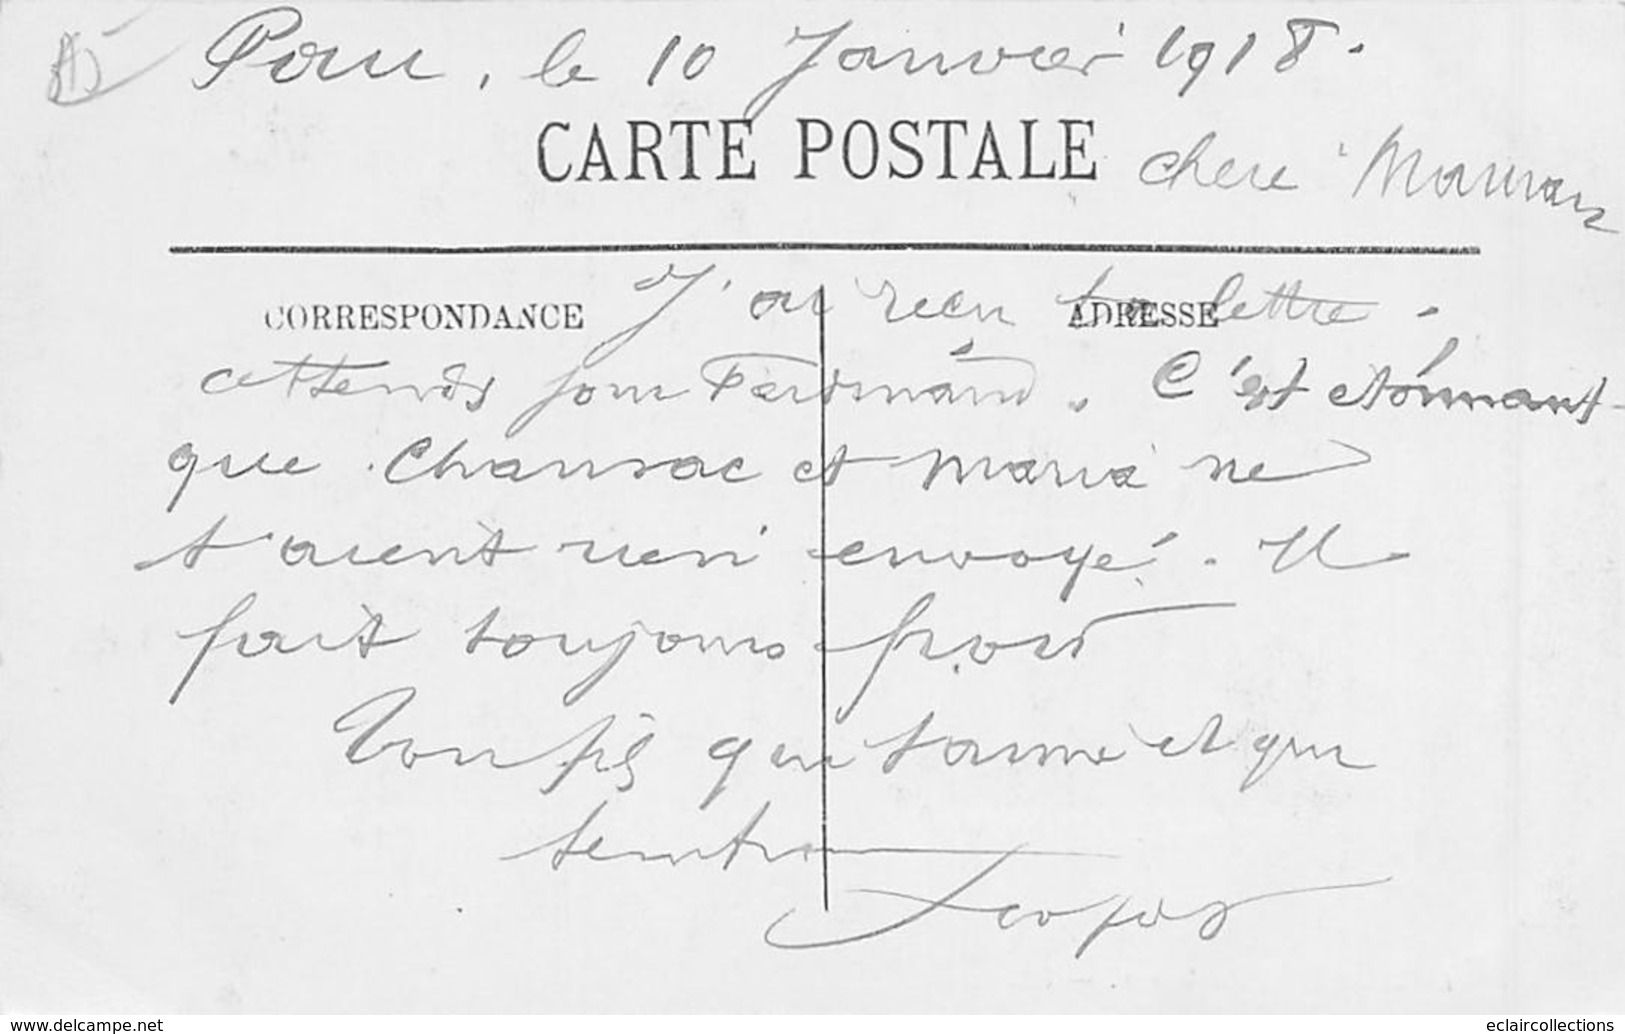 Pau, le 10 Janvier 1918.
CARTE POSTALE chere Maman
CORRESPONDANCE ADRESSE
J'ai recu ta lettre.
attends pour Ferdinand. C'est étonnant
que Chaurac et Maria ne
t'aient rien envoyé. Il
fait toujours froid
Ton fils qui t'aime et qui
www.delcampe.net eclaircollections